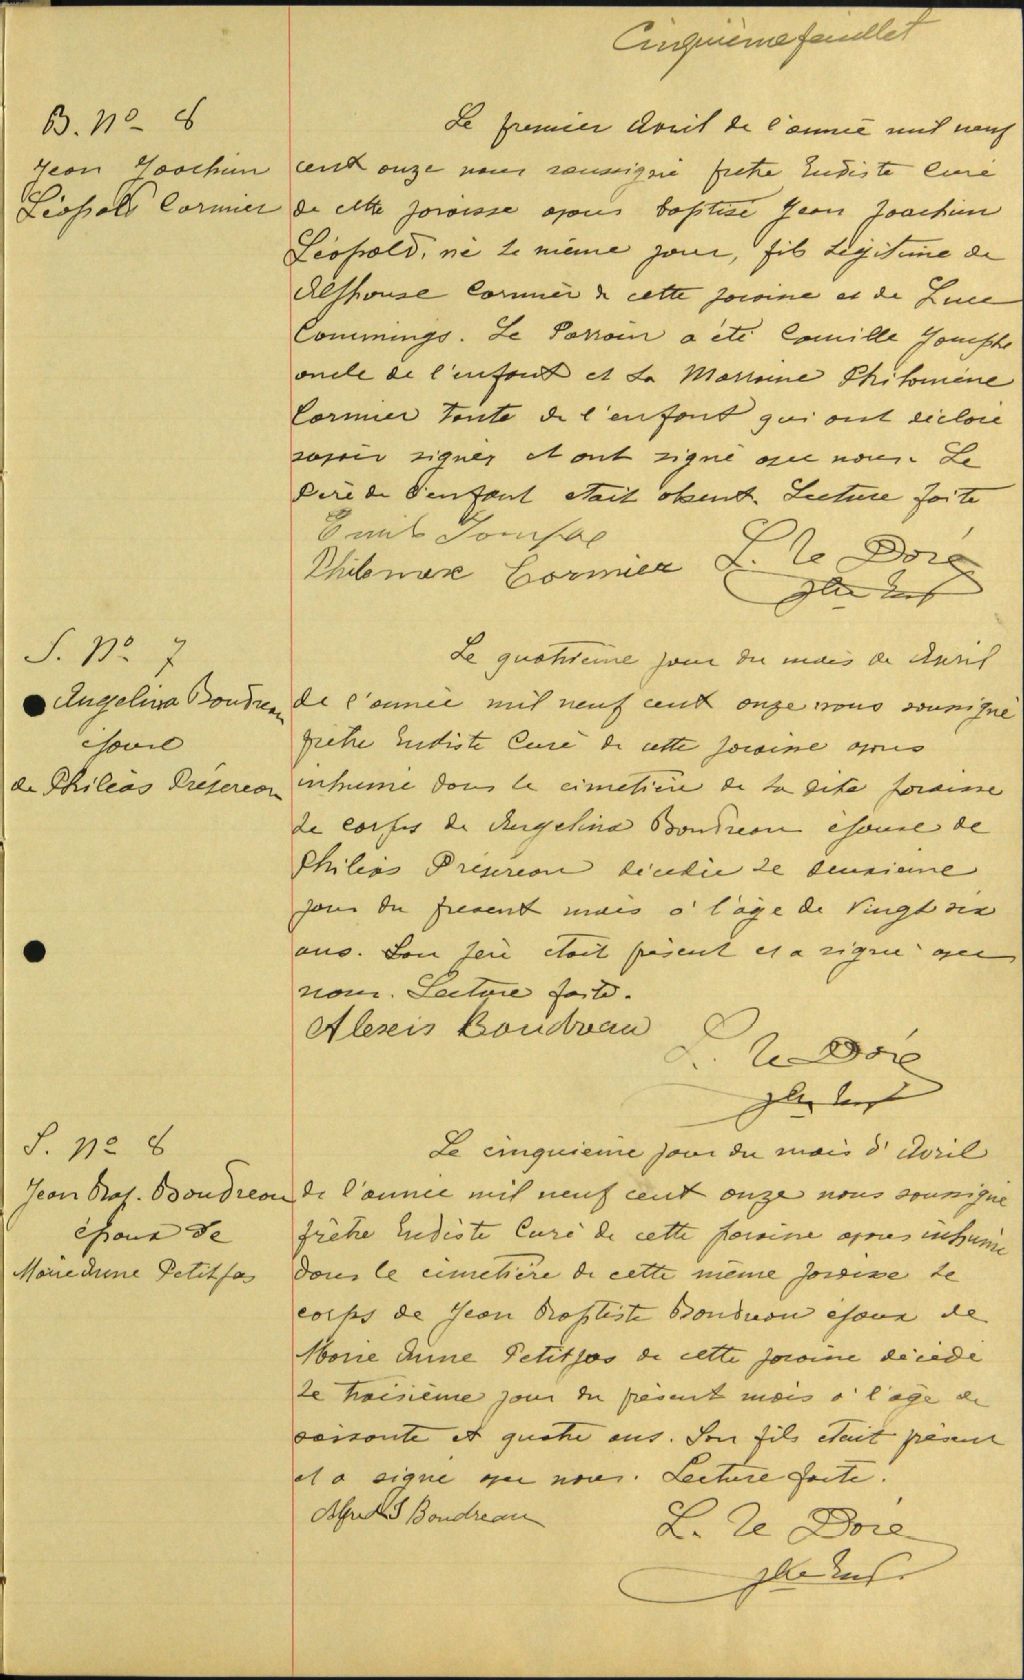 Cinquième feuillet
B. No 8
Jean Joachim
Léopold Cormier
Le premier Avril de l'année mil neuf
cent onze nous soussigné prêtre Eudiste Curé
de cette paroisse avons baptisé Jean Joachim
Léopold, né le même jour, fils légitime de
Alphonse Cormier de cette paroisse et de Luce
Commings. Le Parrain a été Camille
oncle de l'enfant et la Marraine Philomène
Cormier tante de l'enfant qui ont déclaré
savoir signer et ont signé avec nous. Le
Père de l'enfant était absent. Lecture faite
Philomene Cormier L. Le Doré
ptre Eud
S. No 7
Angelina Boudreau
épouse
de Philéas Présereau
Le quatrième jour du mois de Avril
de l'année mil neuf cent onze nous soussigné
prêtre Eudiste Curé de cette paroisse avons
inhumé dans le cimetière de la dite paroisse
le corps de Angelina Boudreau épouse de
Philéas Présereau décédée le deuxième
jour du present mois à l'âge de vingt six
ans. Son père était présent et a signé avec
nous. Lecture faite.
Alexis Boudreau L. Le Doré
ptre Eud
S. No 8
Jean Bap. Boudreau
époux de
Marie Anne Petitpas
Le cinquième jour du mois d'Avril
de l'année mil neuf cent onze nous soussigné
prêtre Eudiste Curé de cette paroisse avons inhumé
dans le cimetière de cette même paroisse le
corps de Jean Baptiste Boudreau époux de
Marie Anne Petitpas de cette paroisse décédé
le troisième jour du présent mois à l'âge de
soixante et quatre ans. Son fils était présent
et a signé avec nous. Lecture faite.
Boudreau L. Le Doré
ptre Eud.